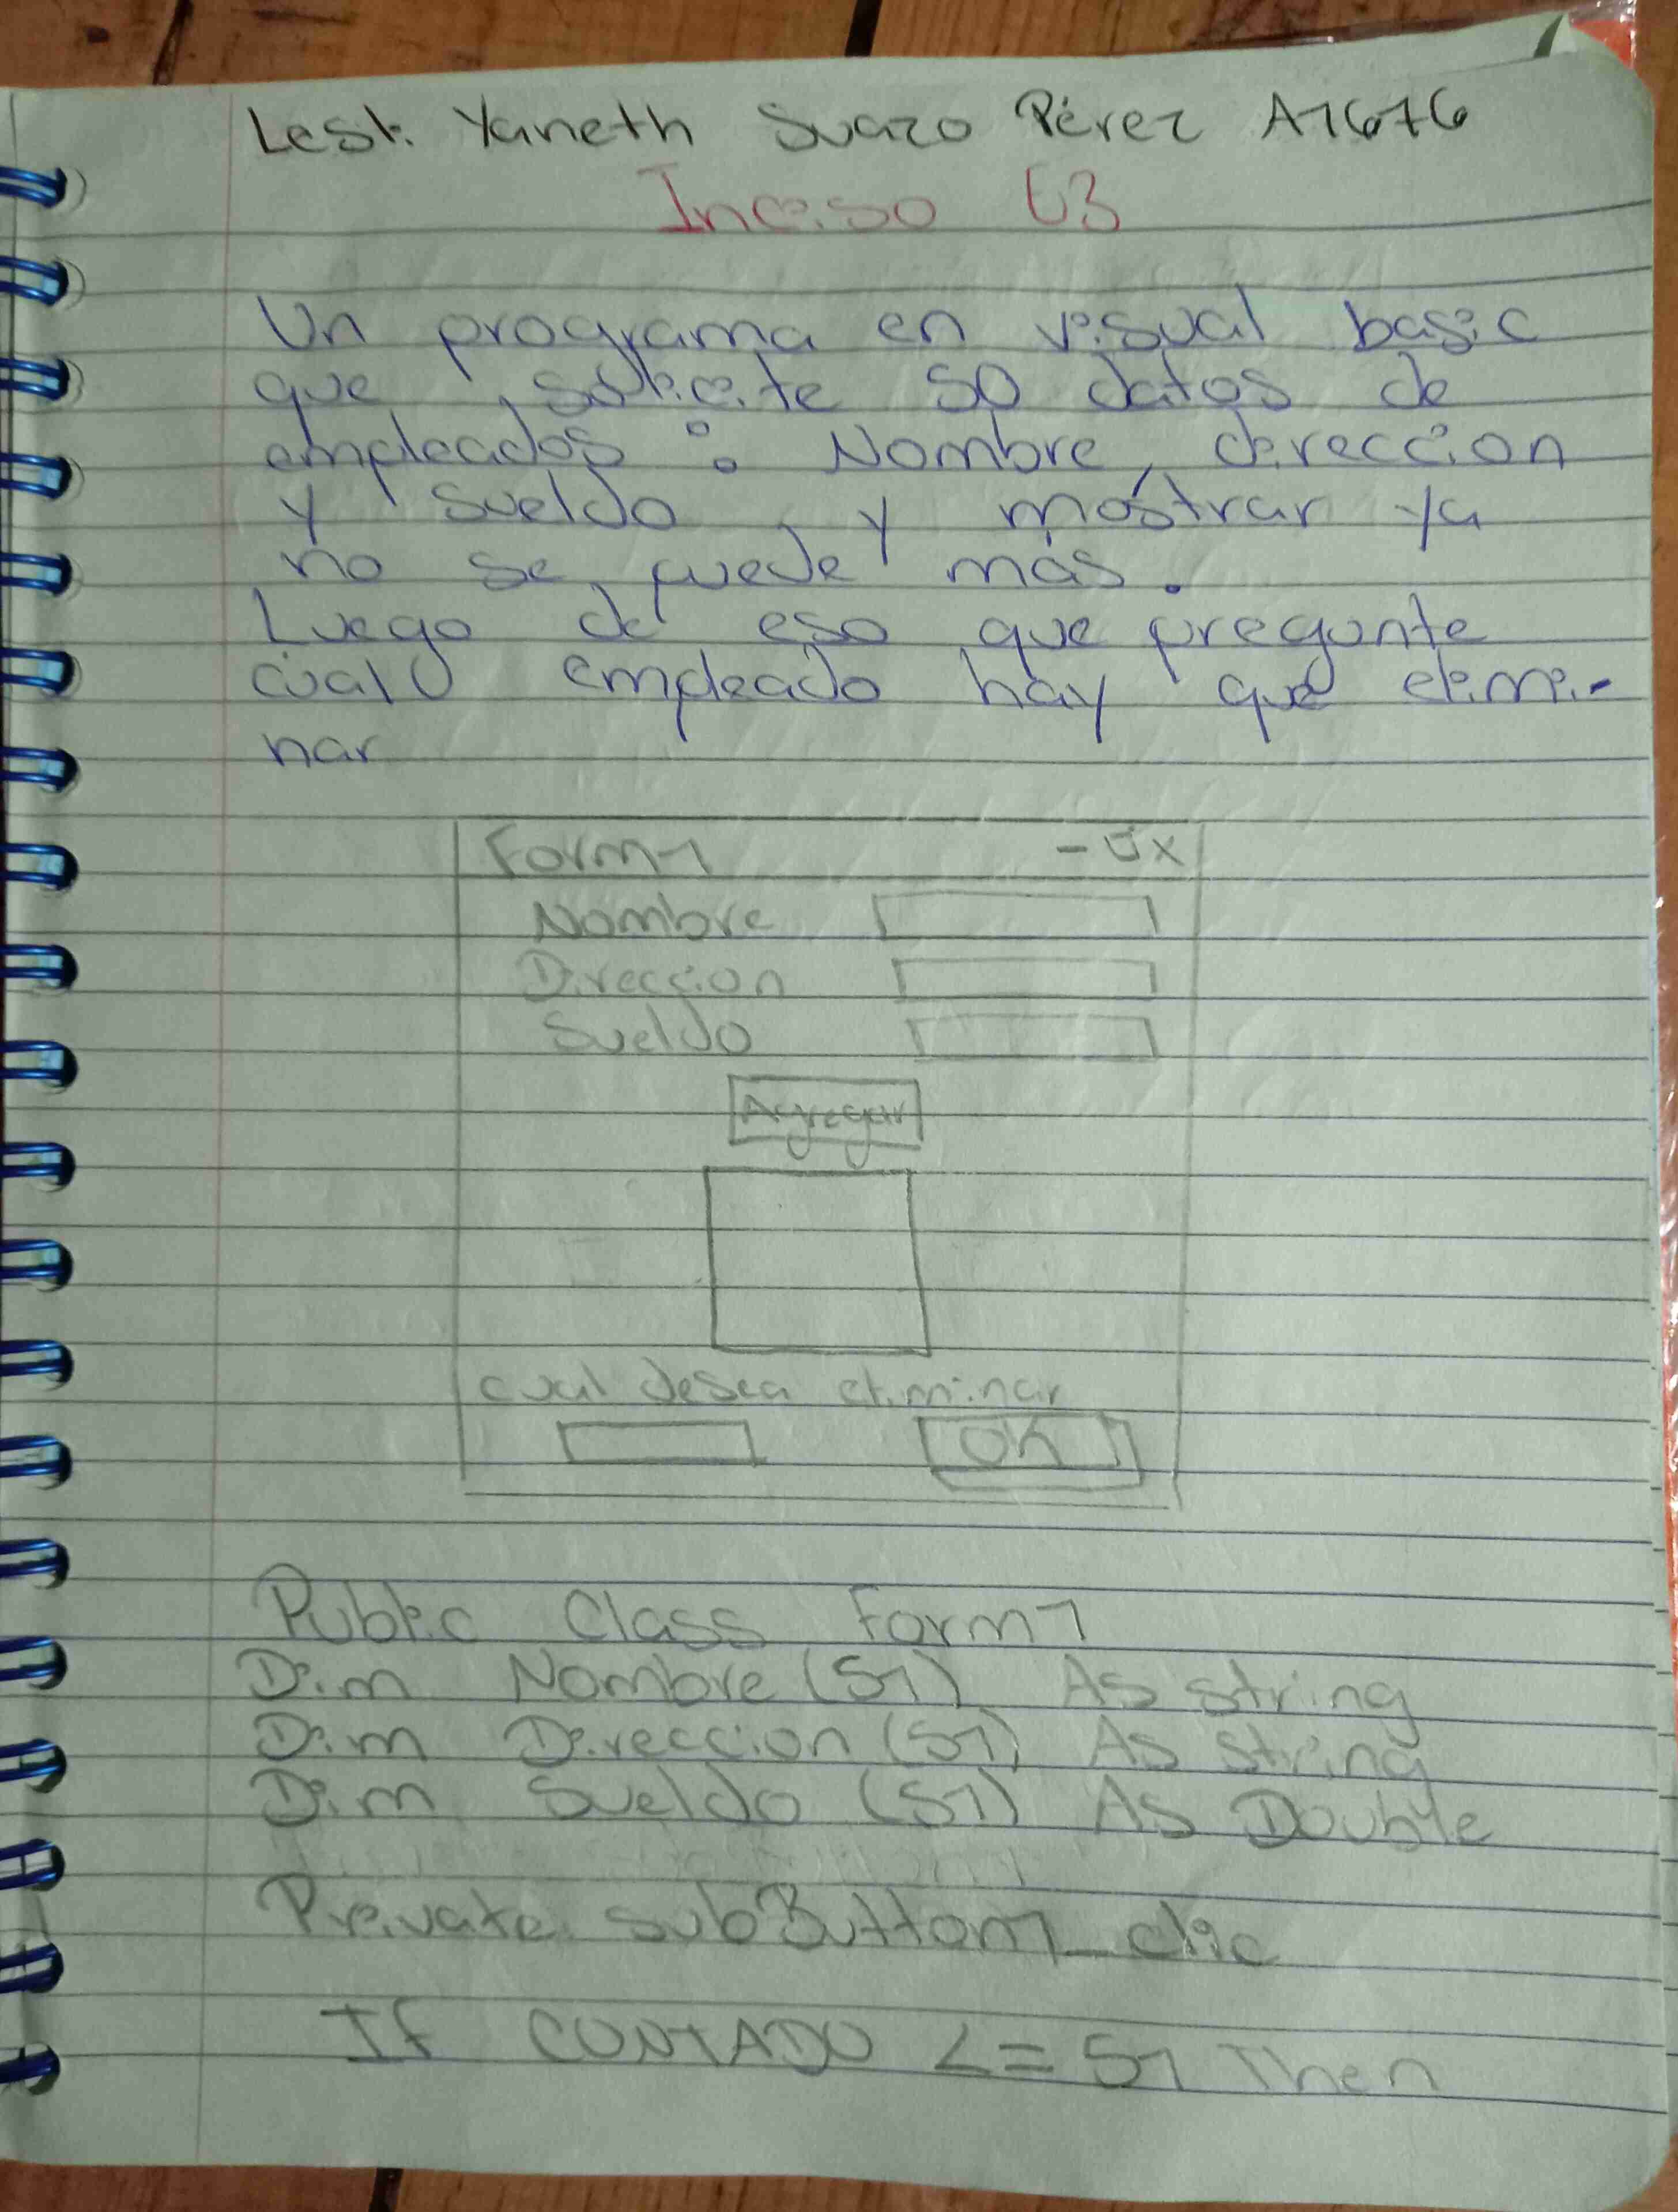 Lesli Yaneth Suazo Pérez A1676
Inciso 63
Un programa en visual basic
que solicite 50 datos de
empleados : Nombre, direccion
y sueldo , y mostrar ya
no se puede más.
Luego de eso que pregunte
cual empleado hay que elimi-
nar
Form1 - □ x
Nombre
Direccion
Sueldo
Agregar
cual desea eliminar
OK
Public Class Form1
Dim Nombre (51) As string
Dim Direccion (51) As string
Dim Sueldo (51) As Double
Private sub Button1_clic
If CONTADO <= 51 Then